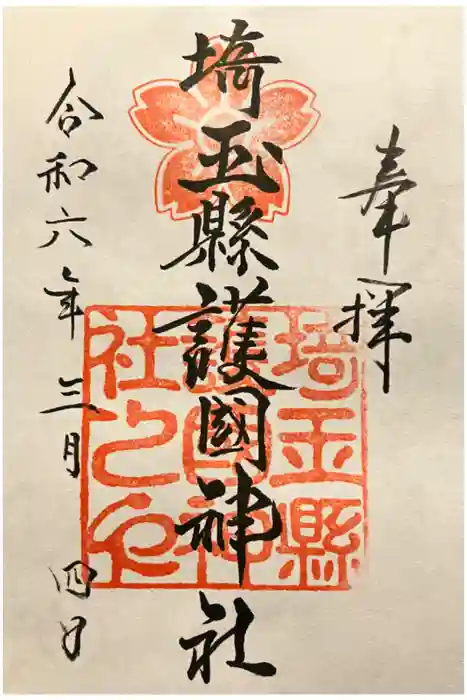 奉拝
埼玉縣護國神社
令和六年三月四日
埼玉縣
護國神
社之印